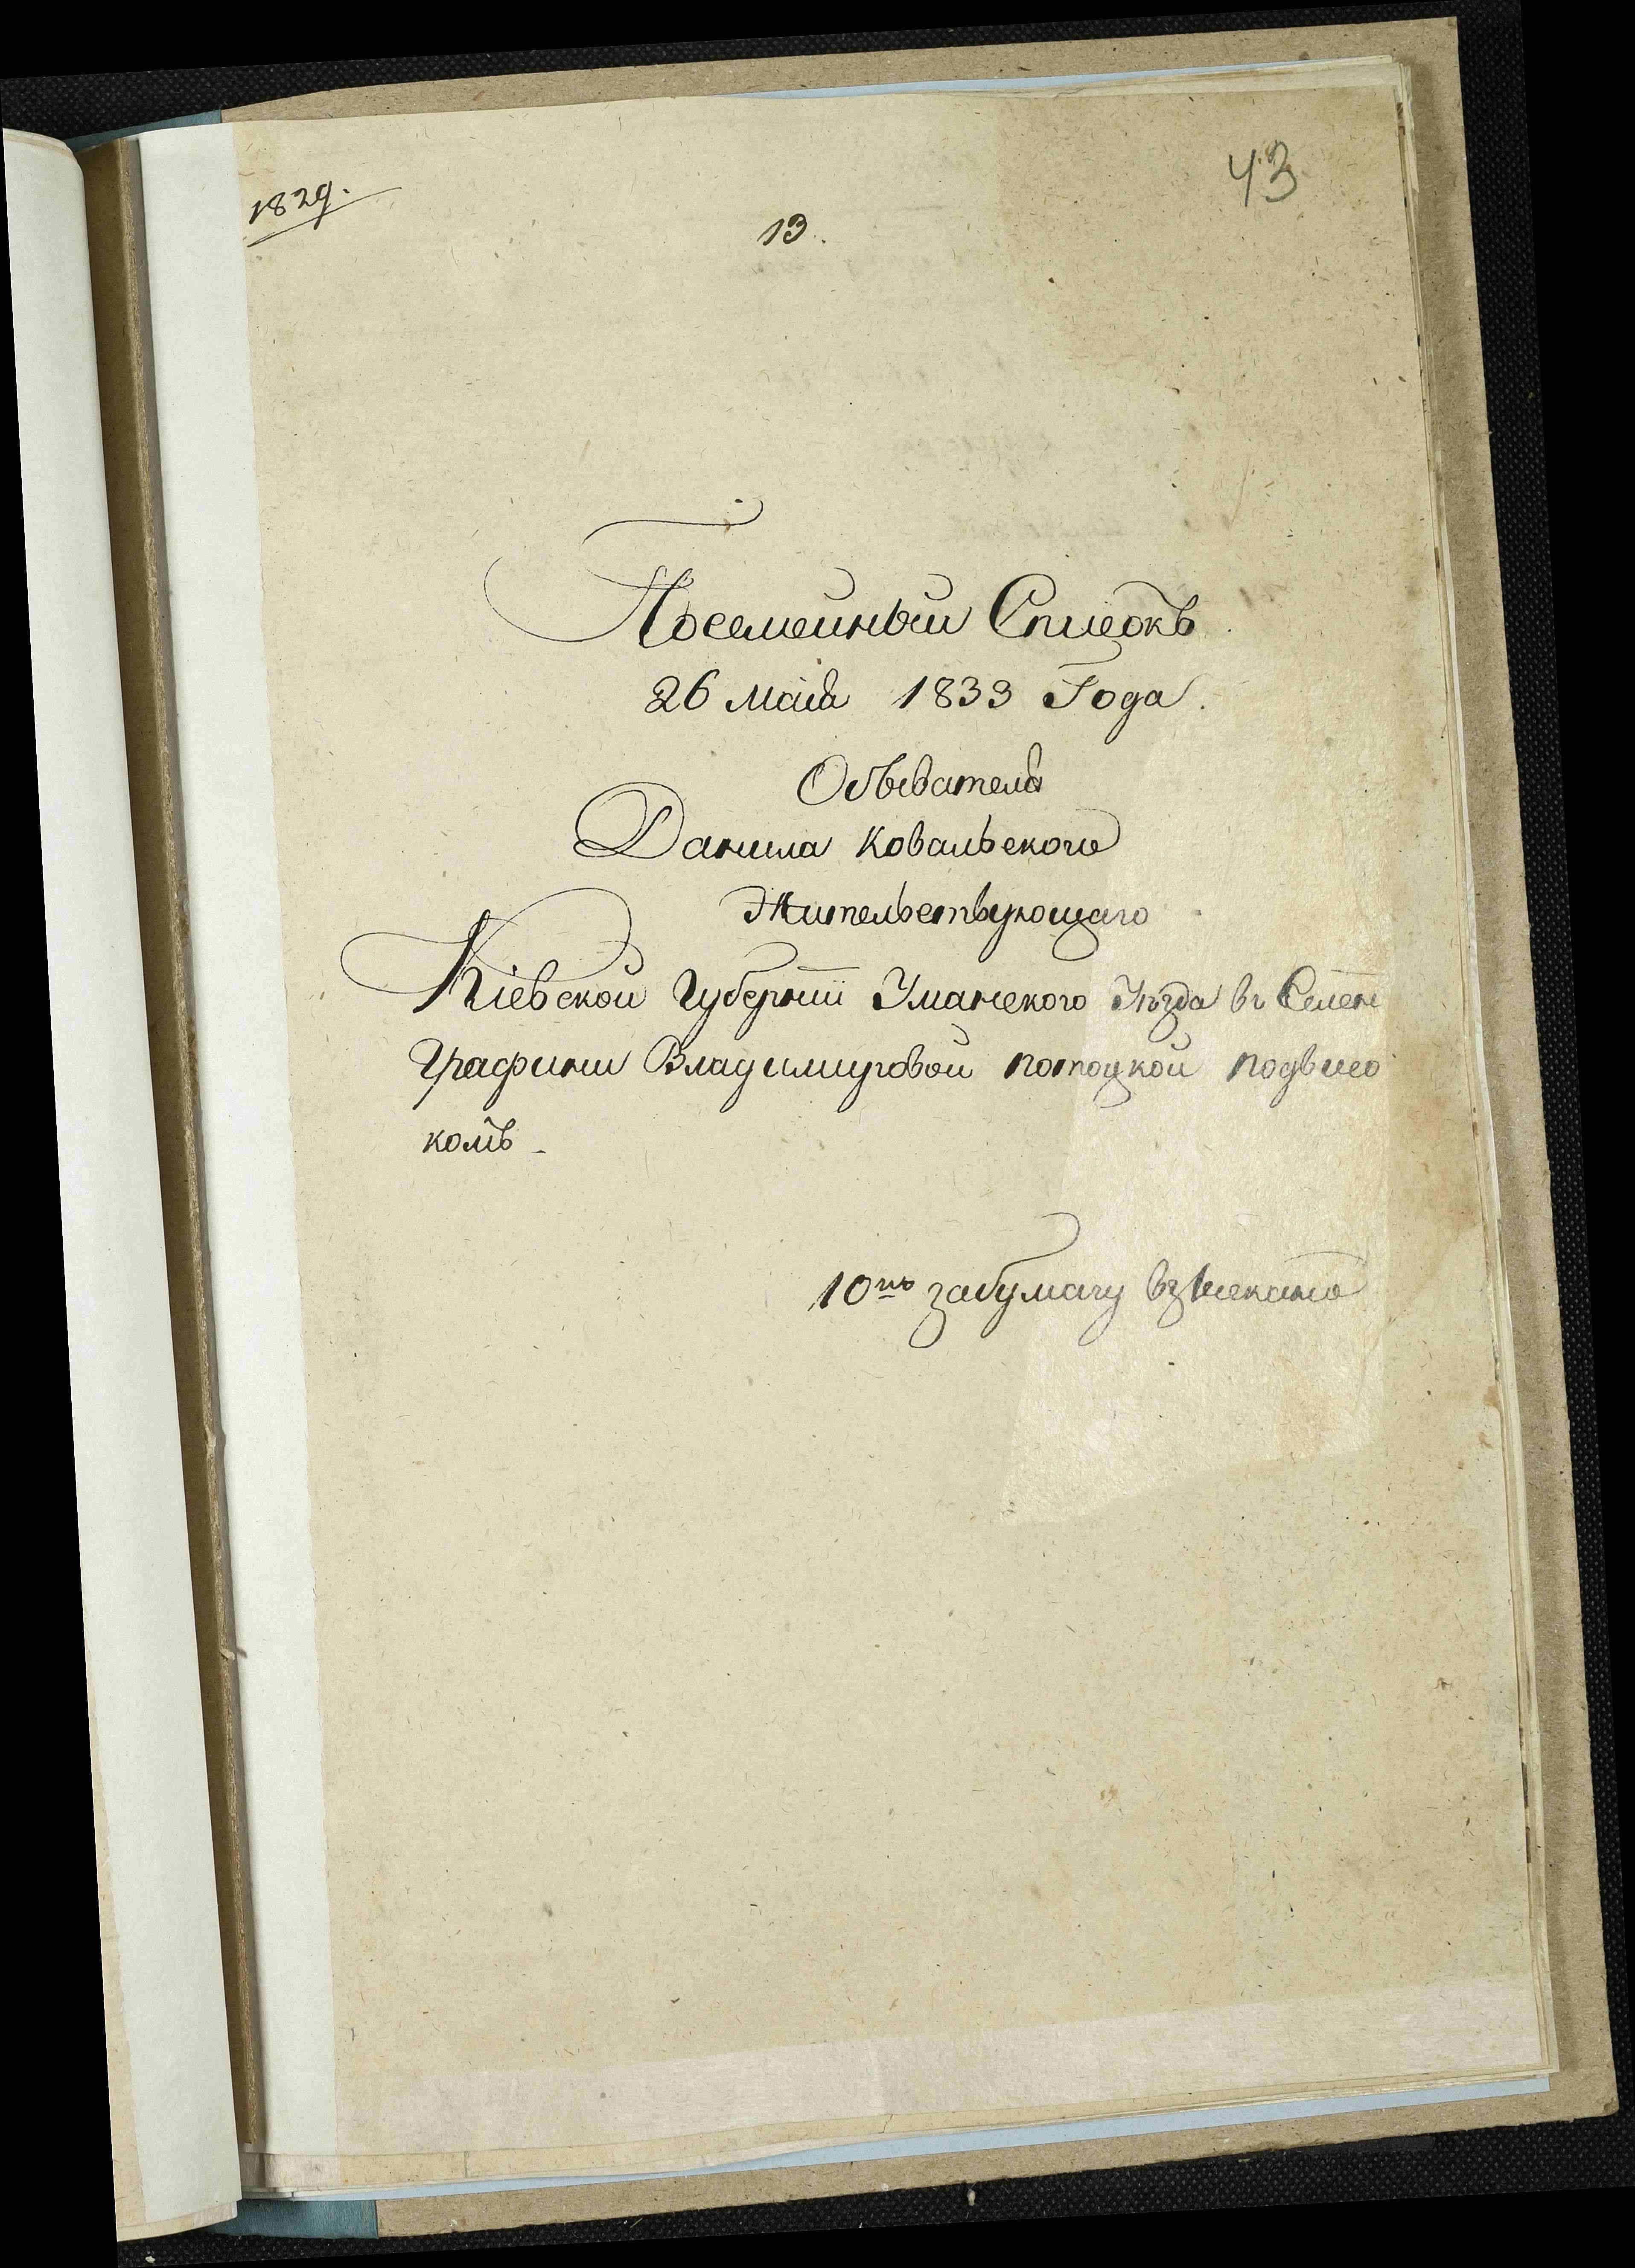 1829.
43
13.
Посемейный Списокъ
26 маія 1833 Года.
Обывателя
Данила Ковальского
Жительствующаго
Кіевской Губерніи Уманского Уѣзда въ Селѣнѣ
Графини Владимировой потоцкой подвисо
комъ
10 за бумагу взыскано